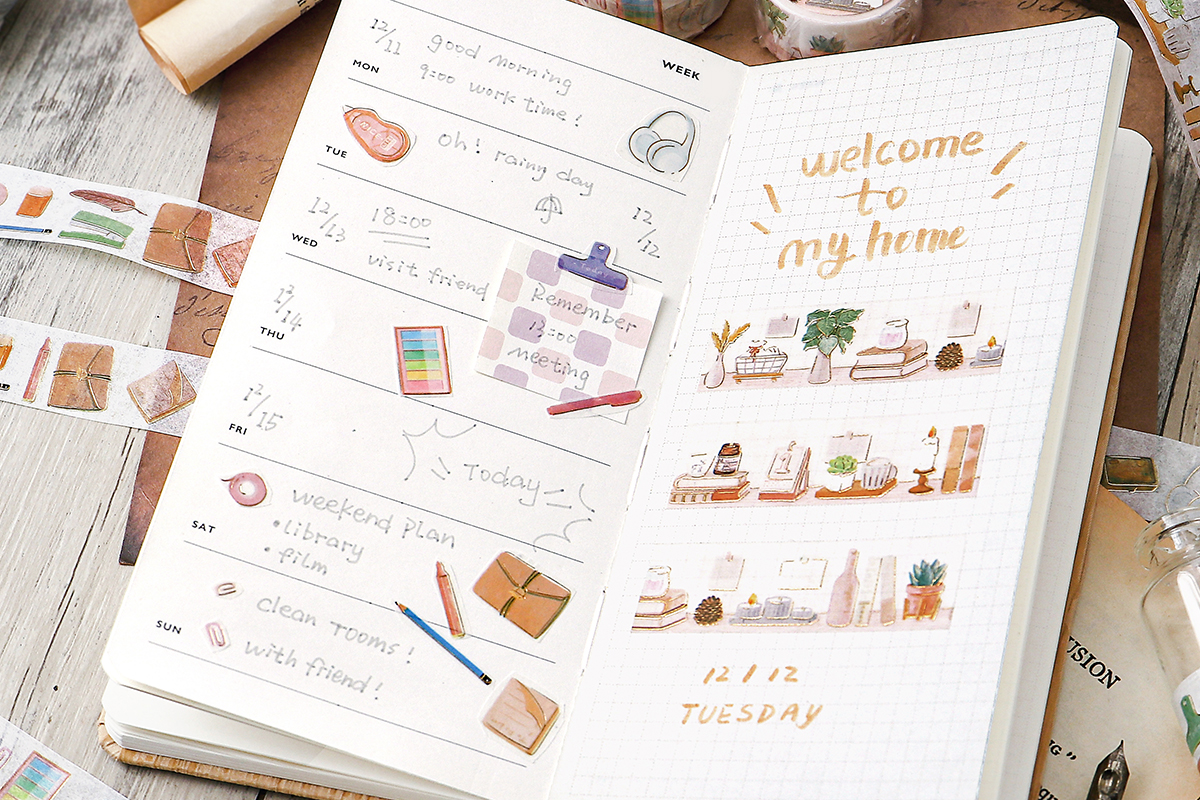 WEEK
12/11
MON
good morning
9:00 work time!
TUE
oh! rainy day
12/12
12/13
WED
18:00
visit friend
Remember
13:00
meeting
12/14
THU
12/15
FRI
Today
SAT
weekend plan
• library
• film
SUN
clean rooms!
with friend!
welcome
to
my home
12/12
TUESDAY
USION